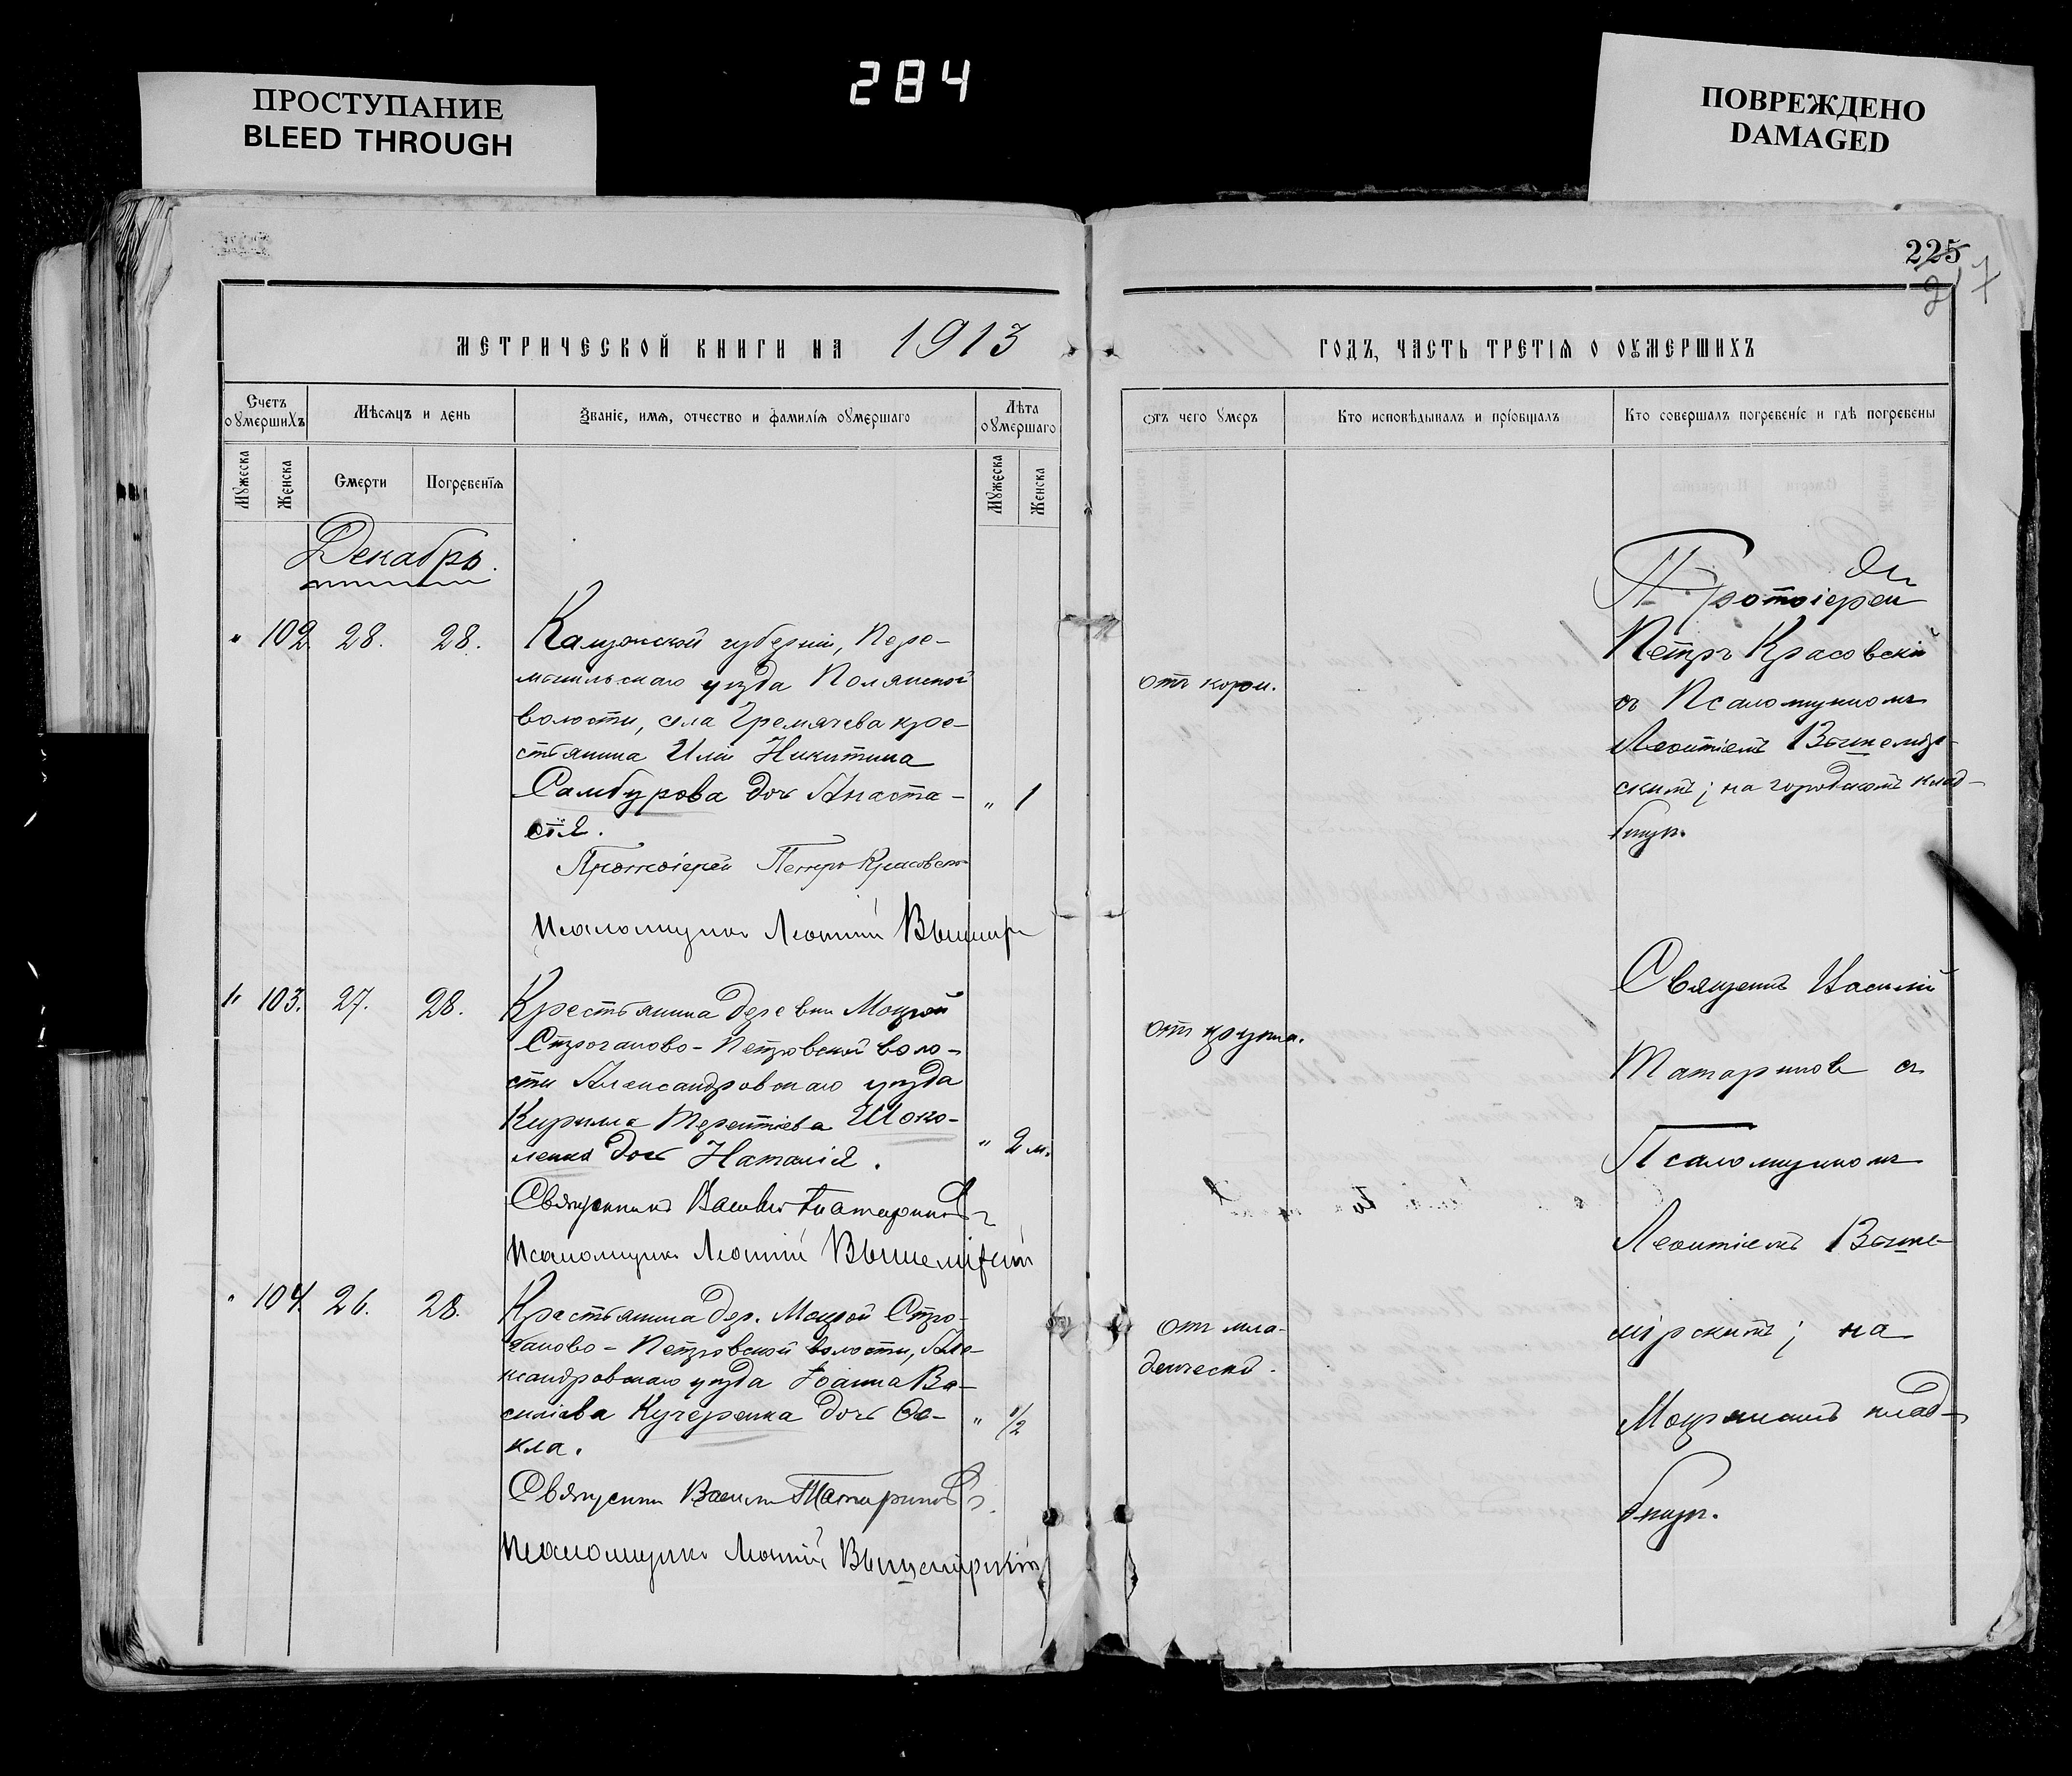 284
ПРОСТУПАНИЕ
BLEED THROUGH
ПОВРЕЖДЕНО
DAMAGED
225
217
МЕТРИЧЕСКОЙ КНИГИ НА 1913
ГОДЪ, ЧАСТЬ ТРЕТІЯ О ОУМЕРШИХЪ
Счетъ оумершихъ
Мѣсяцъ и день
Званіе, имя, отчество и фамилія оумершаго
Лѣта оумершаго
Отъ чего умеръ
Кто исповѣдывалъ и пріобщалъ
Кто совершалъ погребеніе и гдѣ погребены
Мужеска
Женска
Смерти
Погребенія
Мужеска
Женска
Декабрь.
" 102 28. 28.
Калужской губерніи, Пере-
мышльскаго уѣзда Полянской
волости, села Гремячева кре-
стьянина Иліи Никитина
Самбурова дочь Анаста-
сія.
" 1
Протоіерей Петръ Красовскій
Псаломщикъ Леонтій
отъ кори.
Протоіерей
Петръ Красовскій
съ Псаломщикомъ
Леонтіемъ Вышемір-
скимъ; на городскомъ клад-
бищѣ.
" 103. 27. 28.
Крестьянина деревни Мокрой
Строганово-Петровской воло-
сти Александровскаго уѣзда
Кирилла Терентіева Шоко-
ленка дочь Наталія.
" 2 м.
Священникъ Василій Татариновъ
Псаломщикъ Леонтій Вышемірскій
отъ крупа.
Священникъ Василій
Татариновъ съ
Псаломщикомъ
Леонтіемъ Выше-
мірскимъ; на
Мокрянскомъ клад-
бищѣ.
" 104. 26. 28.
Крестьянина дер. Мокрой Стро-
ганово-Петровской волости, Але-
ксандровскаго уѣзда Іоанна Ва-
силіева Кучеренка дочь Ѳе-
кла.
" 1/2
Священникъ Василій Татариновъ
Псаломщикъ Леонтій Вышемірскій
Отъ мла-
денческ.